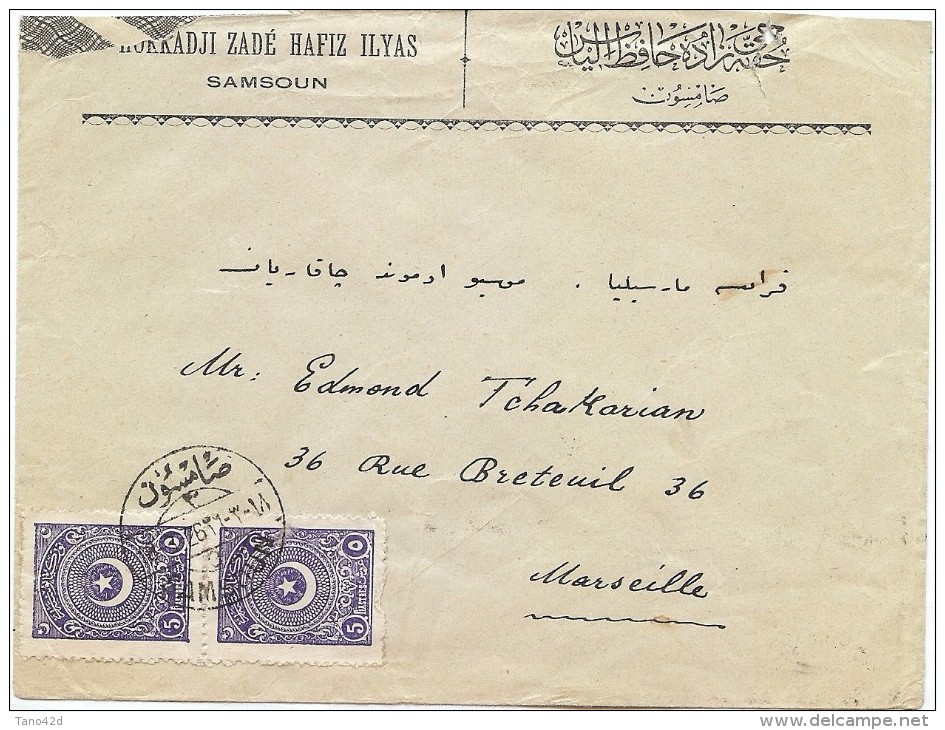 HOKKADJI ZADÉ HAFIZ ILYAS
SAMSOUN
حقه‌جی زاده حافظ الیاس
صامسون
فرانسه مارسیلیا . موسیو ادموند چاقاریان
Mr: Edmond Tchakarian
36 Rue Breteuil 36
Marseille
صامسون
٣
٢٦-٣-١٨
٥
5
٥
5
Tano42d
delcampe.net